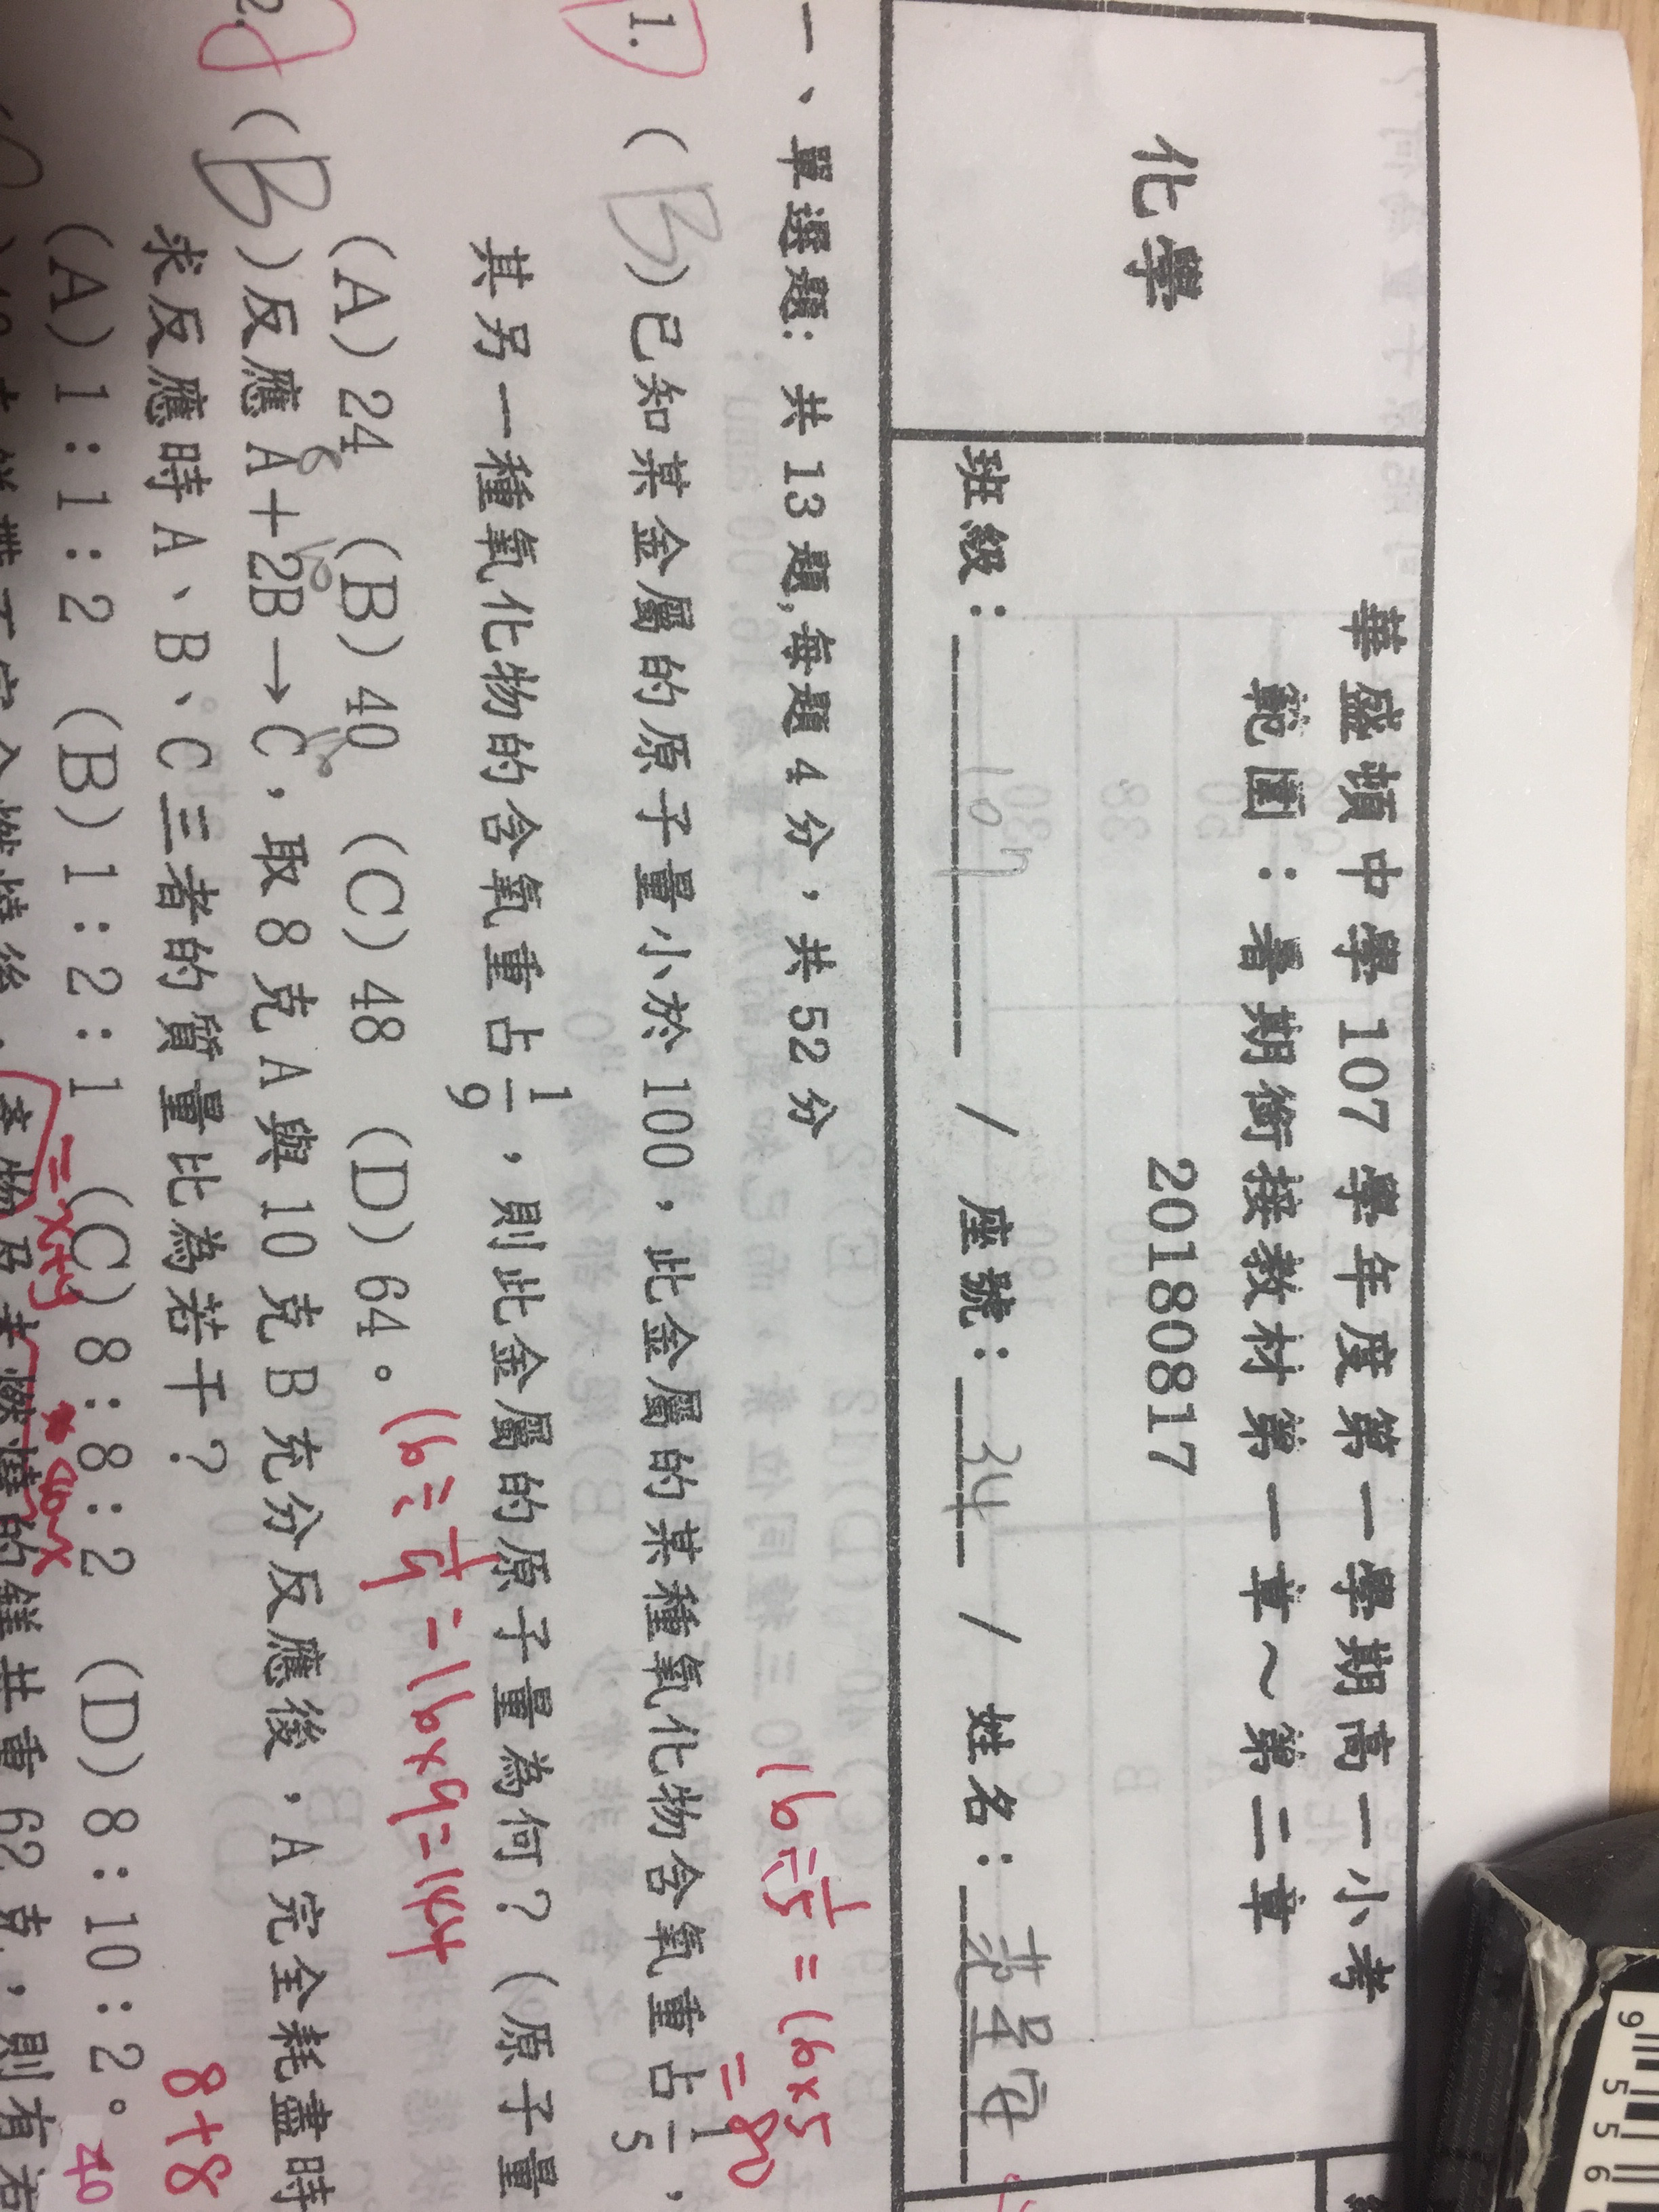 華盛頓中學 107 學年度第一學期高一小考
範圍：暑期銜接教材第一章～第二章
20180817
化學
班級： 107 / 座號： 34 / 姓名：
一、單選題: 共 13 題,每題 4 分，共 52 分
16÷1/5 = 16×5
=80
1. ( B )已知某金屬的原子量小於 100，此金屬的某種氧化物含氧重占 1/5，
其另一種氧化物的含氧重占 1/9，則此金屬的原子量為何？（原子量
(A) 24 (B) 40 (C) 48 (D) 64。
16÷1/9=16×9=144
2. ( B )反應 A＋2B→C，取 8 克 A 與 10 克 B 充分反應後，A 完全耗盡時
求反應時 A、B、C 三者的質量比為若干？
8+8
(A) 1：1：2 (B) 1：2：1 (C) 8：8：2 (D) 8：10：2。
=x+y
40
62 克，則有